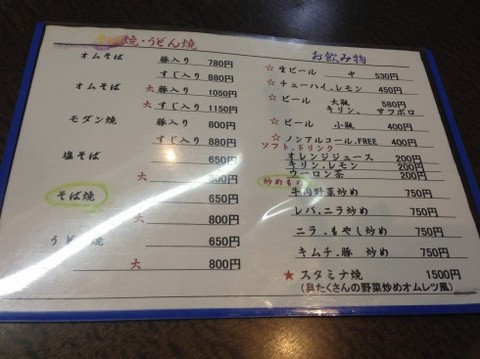 そば焼・うどん焼
オムそば 豚入り 780円
すじ入り 880円
大 豚入り 1050円
大 すじ入り 1150円
モダン焼 豚入り 800円
すじ入り 880円
塩そば 650円
大 800円
そば焼 650円
大 800円
うどん焼 650円
大 800円
お飲み物
☆生ビール 中 530円
☆チューハイ.レモン 450円
☆ビール 大瓶 580円
キリン、サッポロ
☆ビール 小瓶 400円
☆ノンアルコール.FREE 400円
ソフト.ドリンク
オレンジジュース 200円
キリン.レモン 200円
ウーロン茶 200円
炒めもの
牛肉野菜炒め 750円
レバ、ニラ炒め 750円
ニラ.もやし炒め 750円
キムチ.豚 炒め 750円
★スタミナ焼 1500円
(具たくさんの野菜炒めオムレツ風)